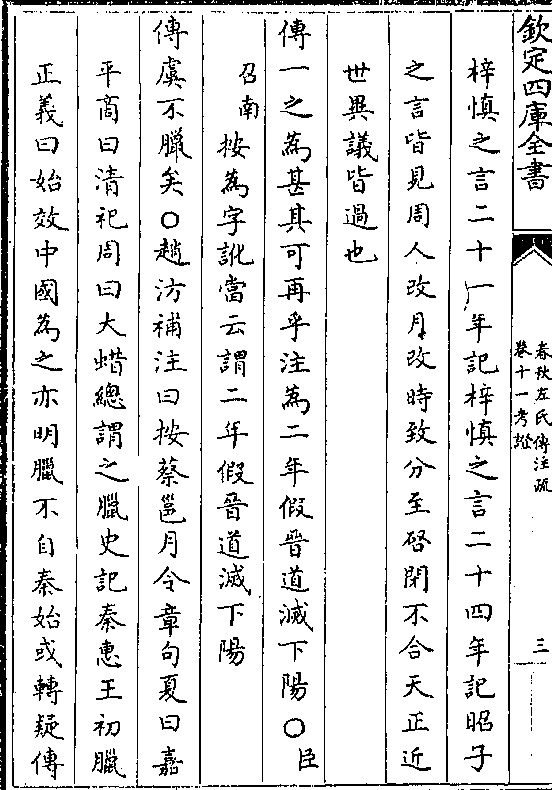 欽定四庫全書
春秋左氏傳注疏
卷十一考證
三
梓慎之言二十一年記梓慎之言二十四年記昭子
之言皆見周人改月改時致分至啓閉不合天正近
世異議皆過也
傳一之為甚其可再乎注為二年假晉道滅下陽○臣
召南按為字訛當云謂二年假晉道滅下陽
傳虞不臘矣○趙汸補注曰按蔡邕月令章句夏曰嘉
平商曰清祀周曰大蜡總謂之臘史記秦惠王初臘
正義曰始效中國為之亦明臘不自秦始或轉疑傳